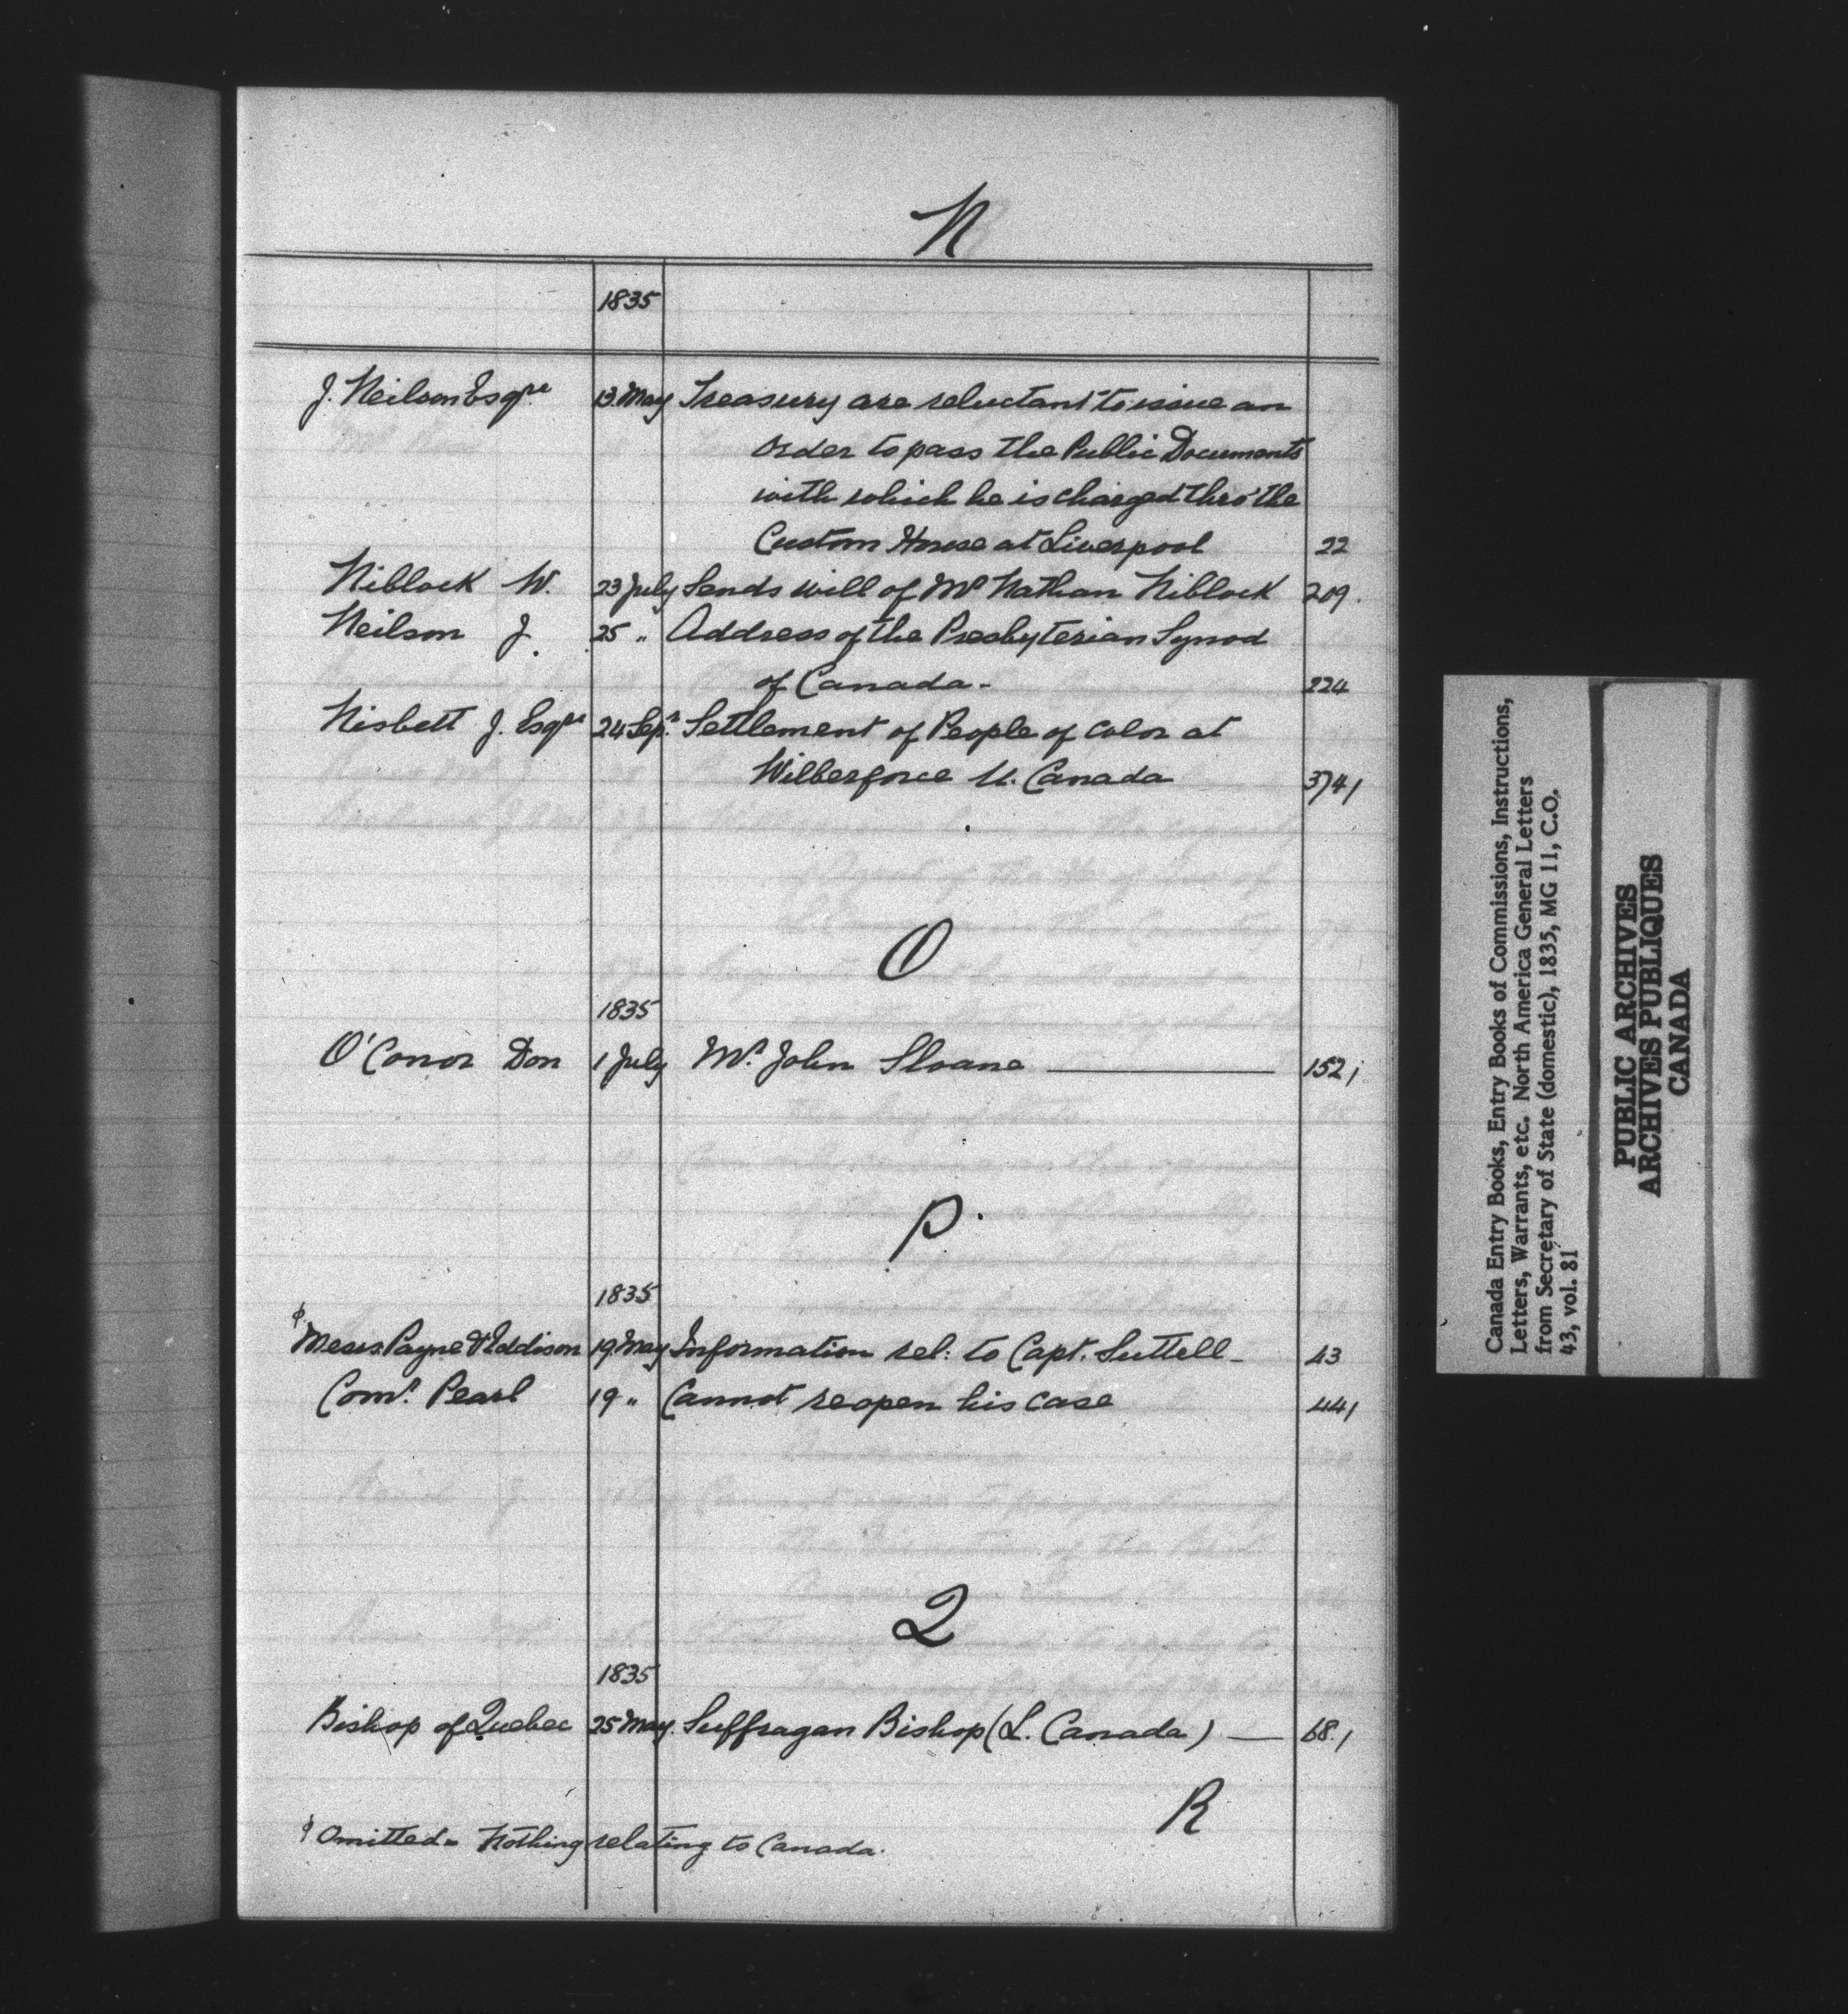 N
1835
J. Neilson Esqre 13 May Treasury are reluctant to issue an
order to pass the Public Documents
with which he is charged thro' the
Custom House at Liverpool 22
Niblock W. 23 July Sends will of Mr Nathan Niblock 209.
Neilson J. 25 " Address of the Presbyterian Synod
of Canada - 224
Nisbett J. Esqre 24 Sepr. Settlement of People of Color at
Wilberforce U. Canada 341
O
1835
O'Conor Don 1 July Mr. John Sloane 152
P.
1835
φ Messrs. Payne & Eddison 19 May Information rel: to Capt. Suttell - 43
Comr. Pearl 19 " Cannot reopen his case 44
Q
1835
Bishop of Quebec 25 May. Suffragan Bishop (L. Canada) — 68.
R
φ Omitted - Nothing relating to Canada.
Canada Entry Books, Entry Books of Commissions, Instructions,
Letters, Warrants, etc. North America General Letters
from Secretary of State (domestic), 1835, MG 11, C.O.
43, vol. 81
PUBLIC ARCHIVES
ARCHIVES PUBLIQUES
CANADA